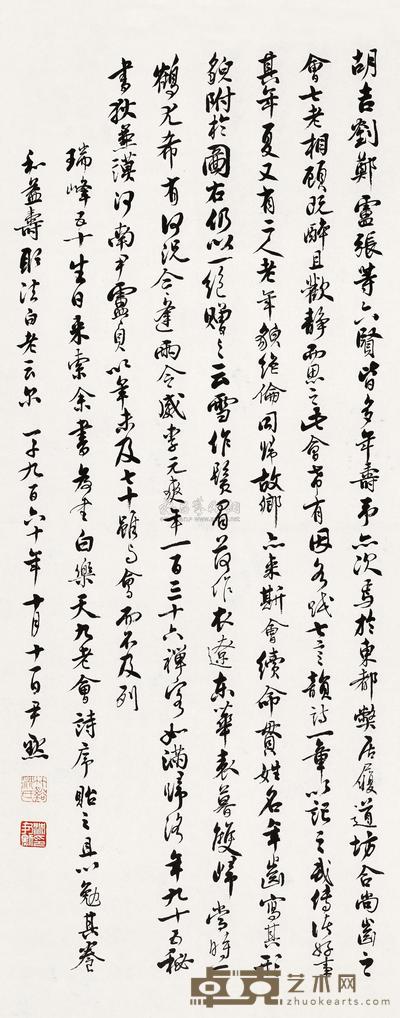 胡吉劉鄭盧張等六賢皆多年壽予亦次焉於東都弊居履道坊合尚齒之
會七老相顧既醉且歡靜而思之此會希有因各賦七言韻詩一章以記之或傳諸好事
其年夏又有二人老年貌絶倫同歸故鄉亦來斯會續命書姓名年齒寫其形
貌附於圖右仍以一絶贈之云雪作鬚眉荷作衣遼東華表暮雙歸當時一
鶴尤希有何況今逢兩令威李元爽年一百三十六禪客如滿歸洛年九十五秘
書狄兼謨河南尹盧貞以年未及七十雖與會而不及列
瑞峰五十生日來索余書為書白樂天九老會詩序貽之且以勉其養
和益壽取法白老云爾 一千九百六十年十月十一日尹默
卓克艺术网
zhuokearts.com